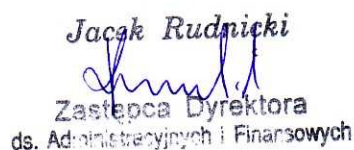 Jacek Rudnicki
Zastępca Dyrektora
ds. Administracyjnych i Finansowych